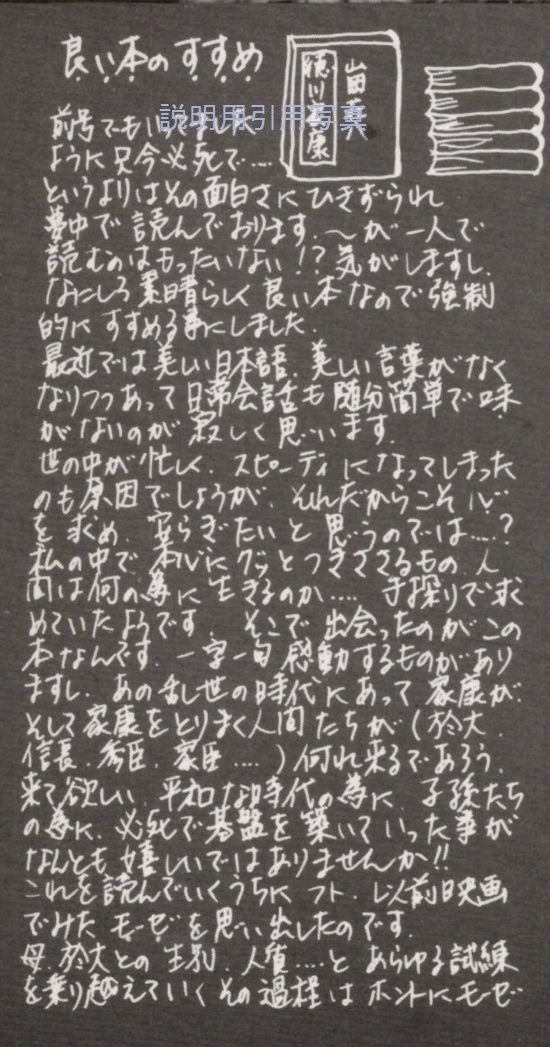 良い本のすすめ
山岡荘八
徳川家康
説明用引用写真
前号でも
ように只今必死で……
というよりはその面白さにひきずられ
夢中で読んでおります。〜が一人で
読むのはもったいない!?気がしますし、
なにしろ素晴らしく良い本なので強制
的にすすめる事にしました。
最近では美しい日本語、美しい言葉がなく
なりつつあって日常会話も随分簡単で味
がないのが寂しく思います。
世の中が忙しく、スピーディになってしまった
のも原因でしょうが、それだからこそ心
を求め、安らぎたいと思うのでは……?
私の中で本心にグッとつきささるもの、人
間は何の為に生きるのか……手探りで求
めていたようです そこで出会ったのがこの
本なんです。一字一句感動するものがあり
ますし、あの乱世の時代にあって家康が、
そして家康をとりまく人間たちが(於大、
信長、秀臣、家臣……)何れ来るであろう、
来て欲しい、平和な時代の為に、子孫たち
の為に、必死で基盤を築いていった事が
なんとも嬉しいではありませんか!!
これを読んでいくうちにフト、以前映画
でみたモーゼを思い出したのです。
母、於大との生別、人質……とあらゆる試練
を乗り越えていくその過程はホントにモーゼ